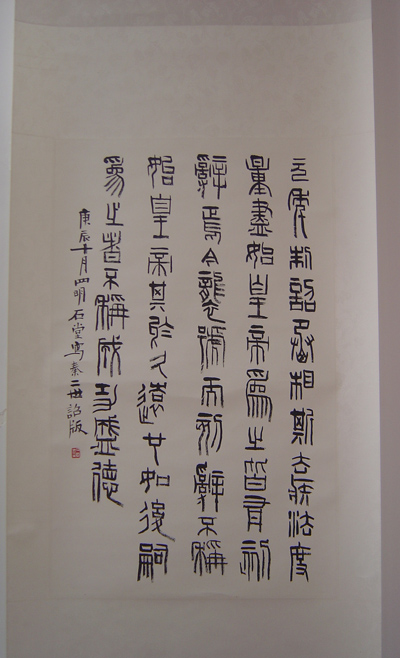 元年制詔丞相斯去疾法度
量盡始皇帝為之皆有刻
辭焉今襲號而刻辭不稱
始皇帝其於久遠也如後嗣
為之者不稱成功盛德
庚辰十月四明石堂寫秦二世詔版